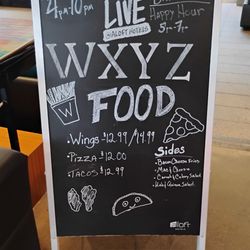 4PM-10PM
LIVE
@ ALOFT HOTELS
Happy Hour
5PM-7PM
WXYZ
W
FOOD
• Wings $12.99/14.99
• Pizza $12.00
• Tacos $12.99
Sides
• Bacon Cheese Fries
• Mac & Cheese
• Carrot & Celery Salad
aloft